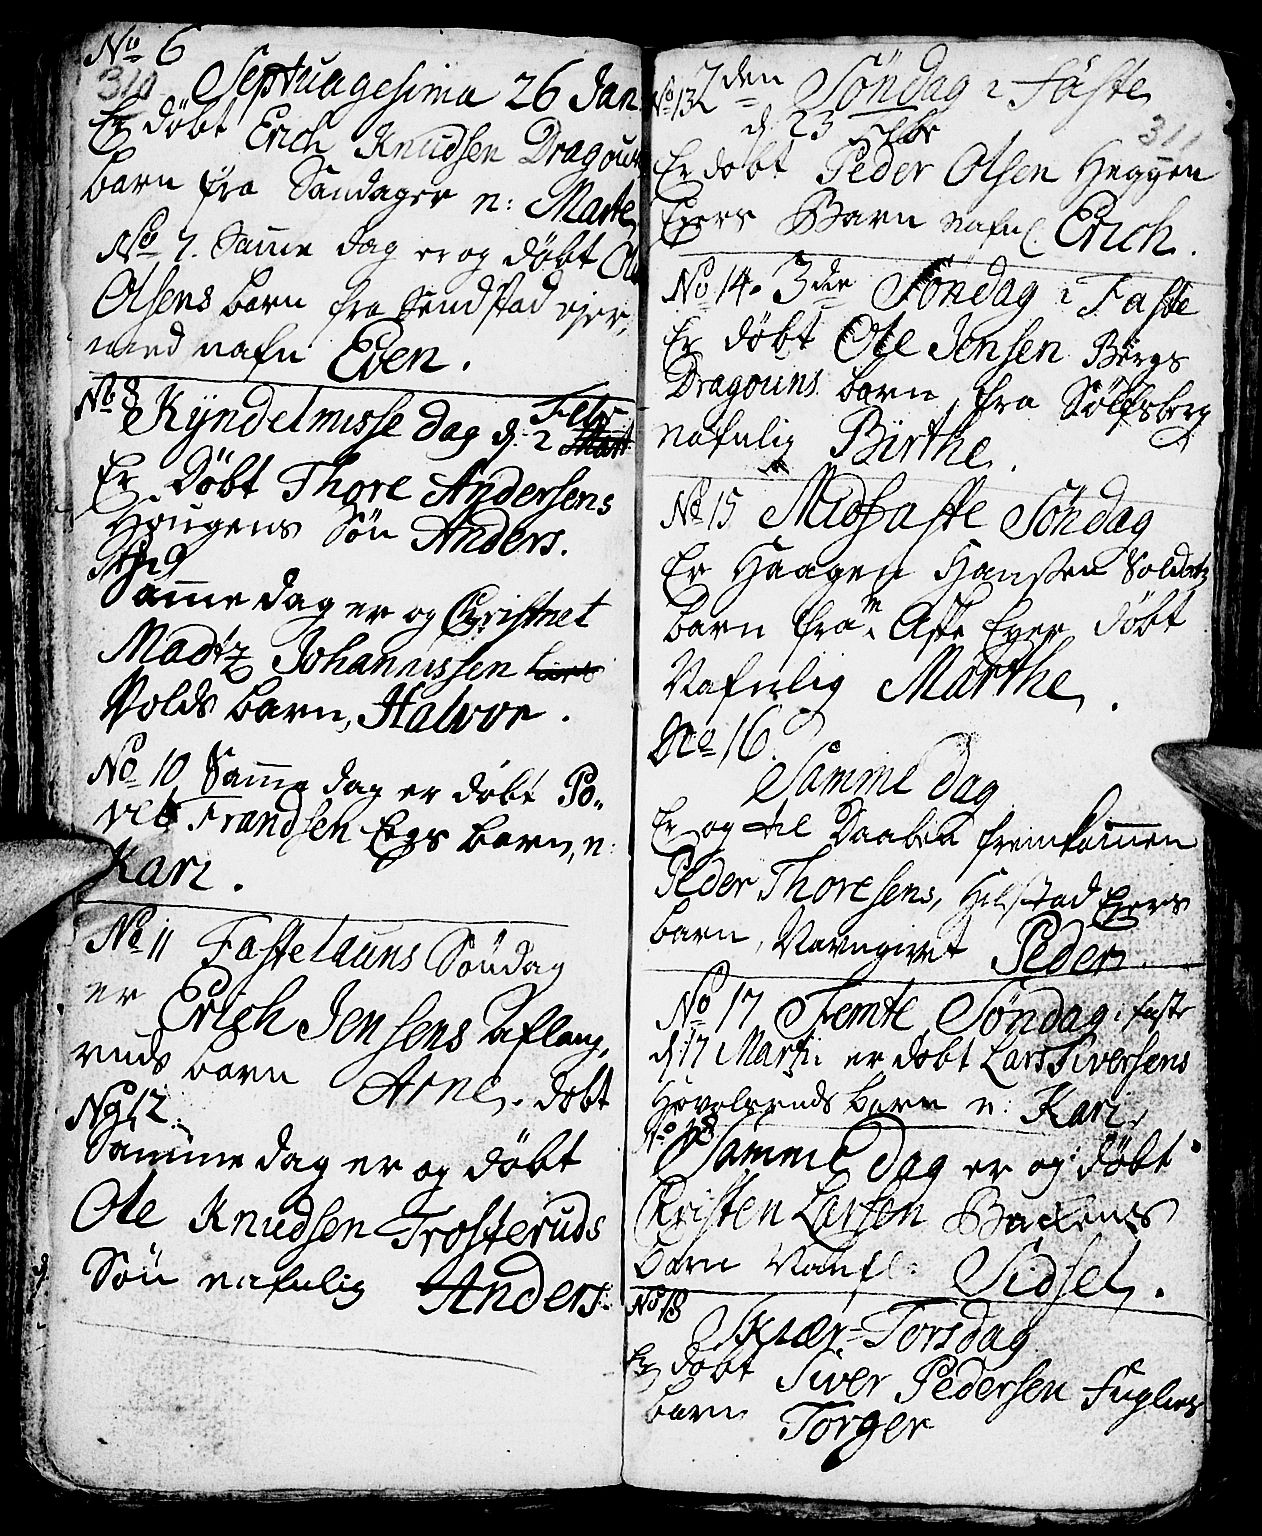 No 6
310
Septuagesima 26 Jan
Er døbt Erich Knudsen Dragoun
barn fra Sandager n: Marte
No 7. Samme dag er og døbt Ole
Olsens barn fra Sendstad ejer,
med nafn Even.
No 8
Kÿndelmisse dag d. 2 Febr
Er Døbt Thore Andersens
Hougens Søn Anders.
No 9
Samme dag er og Christnet
Madtz Johannissen
Volds barn, Halvor.
No 10 Samme dag er døbt Po-
vel Frandsen Egs barn, n:
Kari.
No 11 Fastelauns Søndag
er Erich Jensens
barn Arne. døbt
No 12.
Samme dag er og døbt
Ole Knudsen Trosteruds
Søn nafnlig Anders.
No 13 2den Søndag i Faste
d. 23 Febr
311
Er døbt Peder Olsen Heggen
Ejers Barn nafnl. Erich.
No 14. 3die Søndag i Faste
Er døbt Ole Jensen Bergs
Dragouns barn fra Sølfsberg
nafnlig Birthe.
No 15 Midfaste Søndag
Er Haagen Hansen Soldatz
barn fra Aske Eyer døbt
Nafnlig Marthe.
No 16
Samme dag
Er og til Daaben fremkommen
Peder Thoresens, Hilstad Ejers
barn, Navngivet Peder.
No 17 Femte Søndag i faste
d. 17 Martz: er døbt Lars Siversens
barn n: Kari.
No 18
Samme dag er og døbt
Christen Larsen Backens
barn Nafl: Sidsel.
No 18
Skiær-Torsdag
Er døbt Siver Pedersen Fuglies
barn Torger